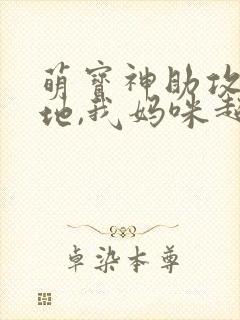 萌宝神助攻
地,我妈咪超
卓染本尊